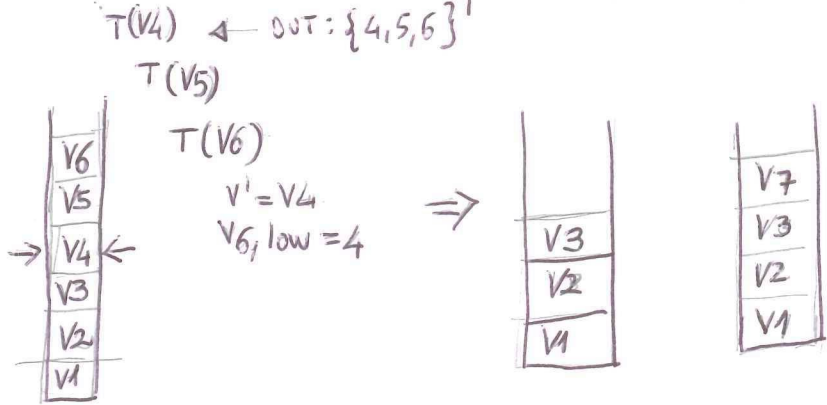 T(V4) ← OUT: {4,5,6}
T(V5)
T(V6)
V' = V4
V6, low = 4
⇒
V6
V5
→ V4 ←
V3
V2
V1
V3
V2
V1
V7
V3
V2
V1